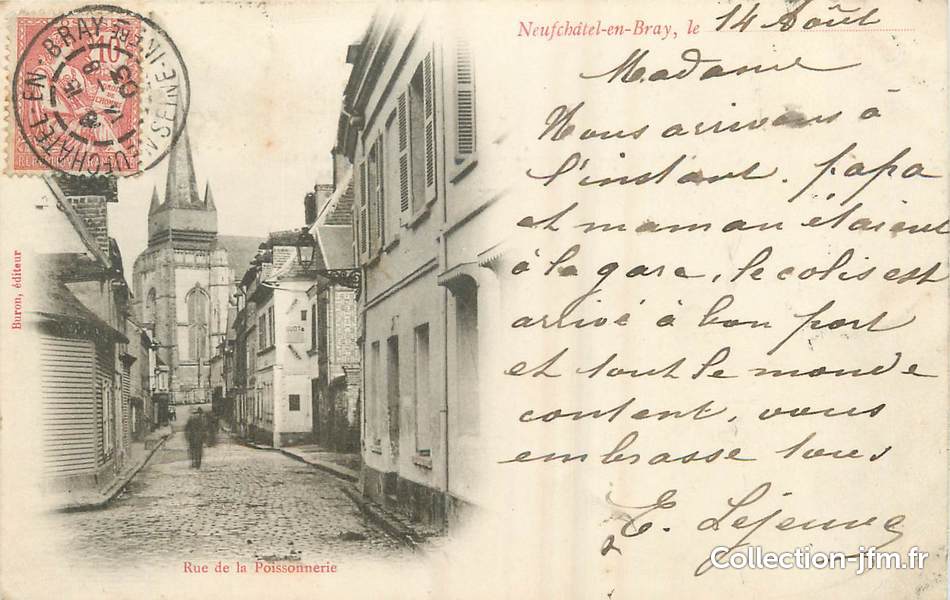 Neufchâtel-en-Bray, le 14 Août
Madame
Nous arrivons à
l'instant. papa
et maman étaient
à la gare, le colis est
arrivé à bon port
et tout le monde
content, vous
embrasse tous
E. Lejeune
Buron, éditeur
Rue de la Poissonnerie
10
NEUFCHATEL-EN-BRAY
SEINE-INFRE
03
REPUBLIQUE FRANÇAISE
Collection-jfm.fr